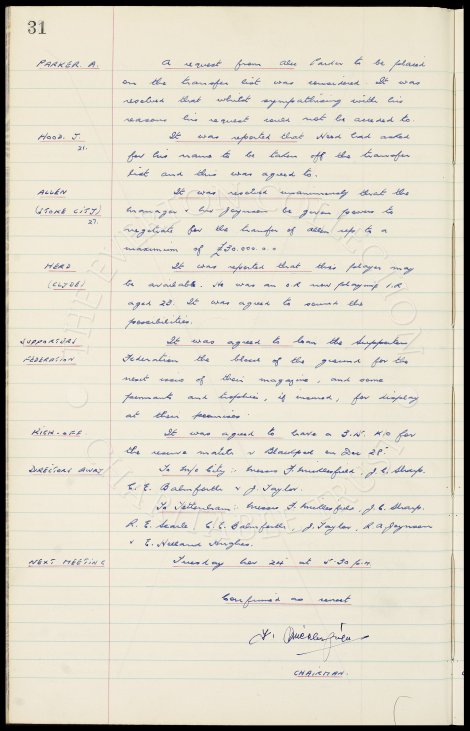 31
PARKER. A. A request from Alec Parker to be placed
on the transfer list was considered. It was
resolved that whilst sympathising with his
reasons his request could not be acceded to.
HOOD. J. It was reported that Hood had asked
21.
for his name to be taken off the transfer
list and this was agreed to.
ALLEN It was resolved unanimously that the
(STOKE CITY) manager & Mr Joynson be given powers to
27.
negotiate for the transfer of Allen up to a
maximum of £30.000.0.0
HERD It was reported that this player may
(CLYDE) be available. He was an O.R now playing I.R.
aged 23. It was agreed to sound the
possibilities.
SUPPORTERS It was agreed to loan the Supporters
FEDERATION Federation the block of the ground for the
next issue of their magazine, and some
pennants and trophies, if insured, for display
at their premises.
KICK-OFF It was agreed to have a K.O for
the reserve match v Blackpool on Dec 28th
DIRECTORS AWAY To M/c City: Messrs F. Micklesfield, J.C. Sharp.
C. E. Balmforth & J. Taylor.
To Tottenham: Messrs F. Micklesfield, J.C. Sharp.
R. E. Searle, C. E. Balmforth, J. Taylor, R.A Joynson
& E. Holland Hughes.
NEXT MEETING Tuesday Dec 24th at 5-30 p.m.
Confirmed as correct
F. Micklesfield
CHAIRMAN.